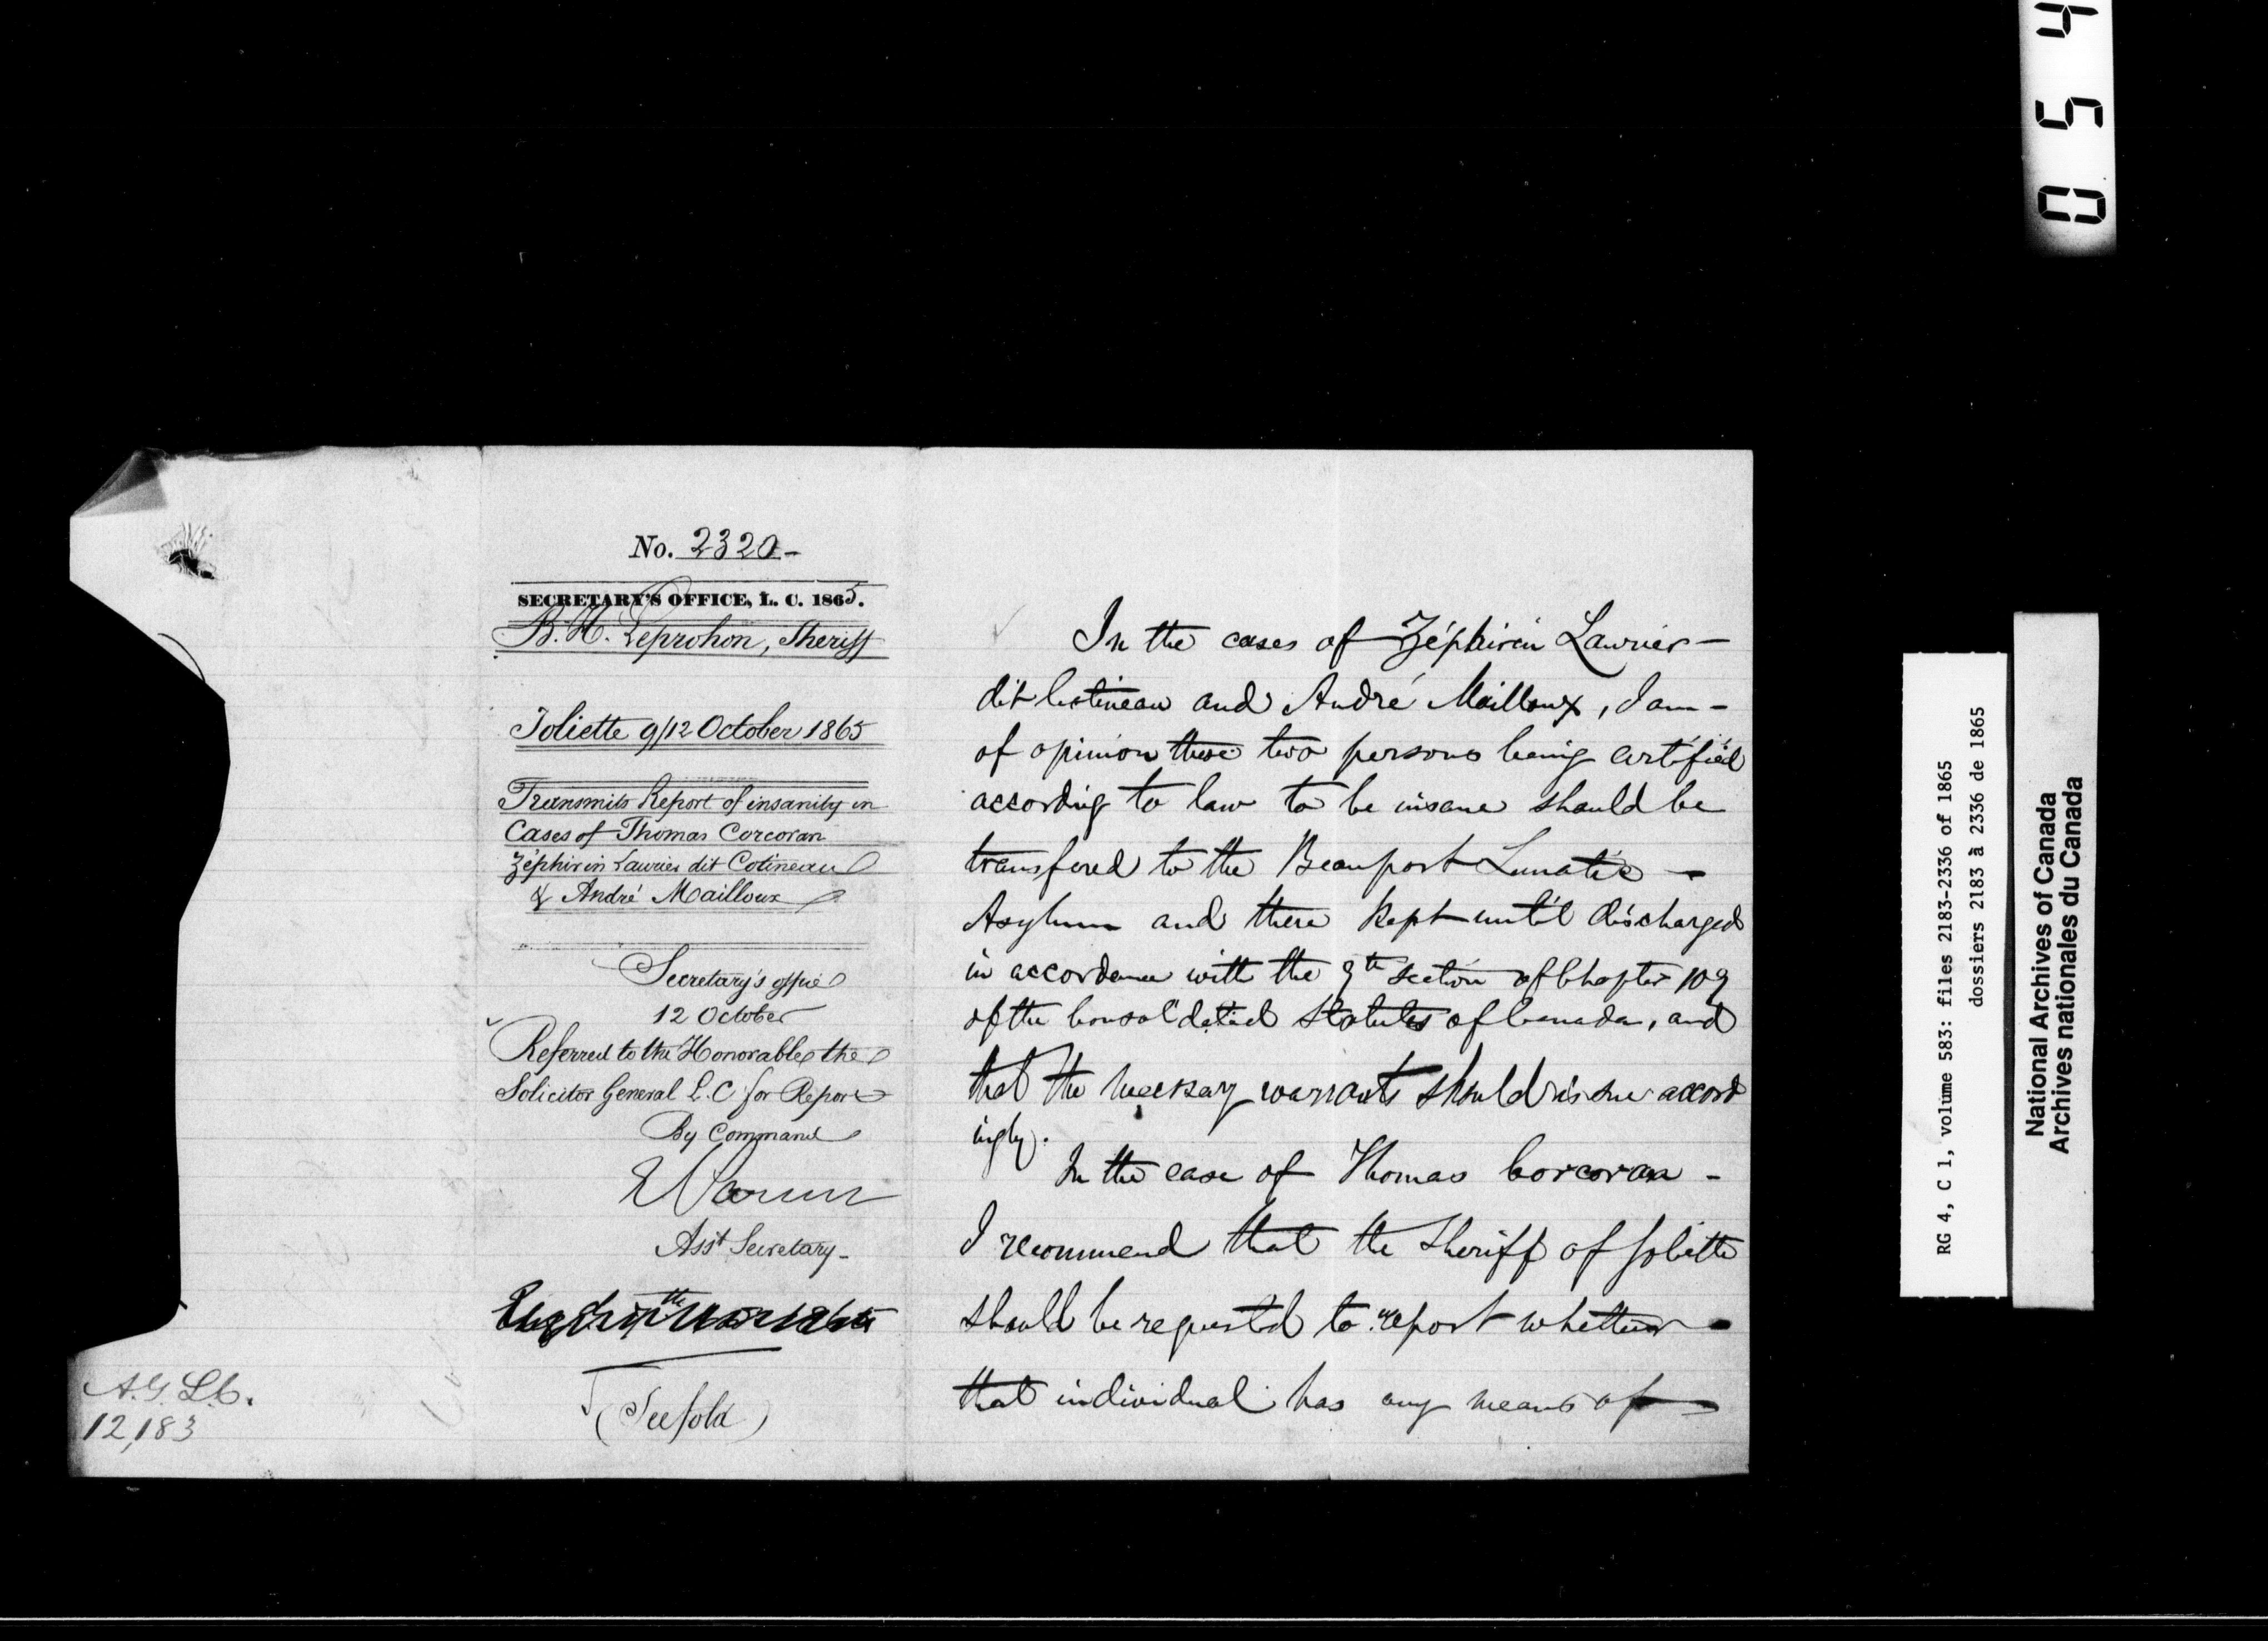 No. 2320-
SECRETARY'S OFFICE, L. C. 1865.
B. H. Leprohon, Sheriff
Joliette 9/12 October 1865
Transmits Report of insanity in
Cases of Thomas Corcoran
Zéphirin Laurier dit Cotineau
& André Mailloux
Secretary's office
12 October
Referred to the Honorable the
Solicitor General L.C for Report
By Command
Asst Secretary-
(See fold)
A.G. L.C.
12,183
In the cases of Zéphirin Laurier-
dit Cotineau and André Mailloux, I am-
of opinion these two persons being certified
according to law to be insane should be
transfered to the Beauport Lunatic -
Asylum and there kept until discharged
in accordance with the 9th section of Chapter 109
of the Consolidated Statutes of Canada, and
that the necessary warrants should issue accord
ingly.
In the case of Thomas Corcoran -
I recommend that the Sheriff of Joliette
should be requested to report whether -
that individual has any means of
0 5 4
RG 4, C 1, volume 583: files 2183-2336 of 1865
dossiers 2183 à 2336 de 1865
National Archives of Canada
Archives nationales du Canada